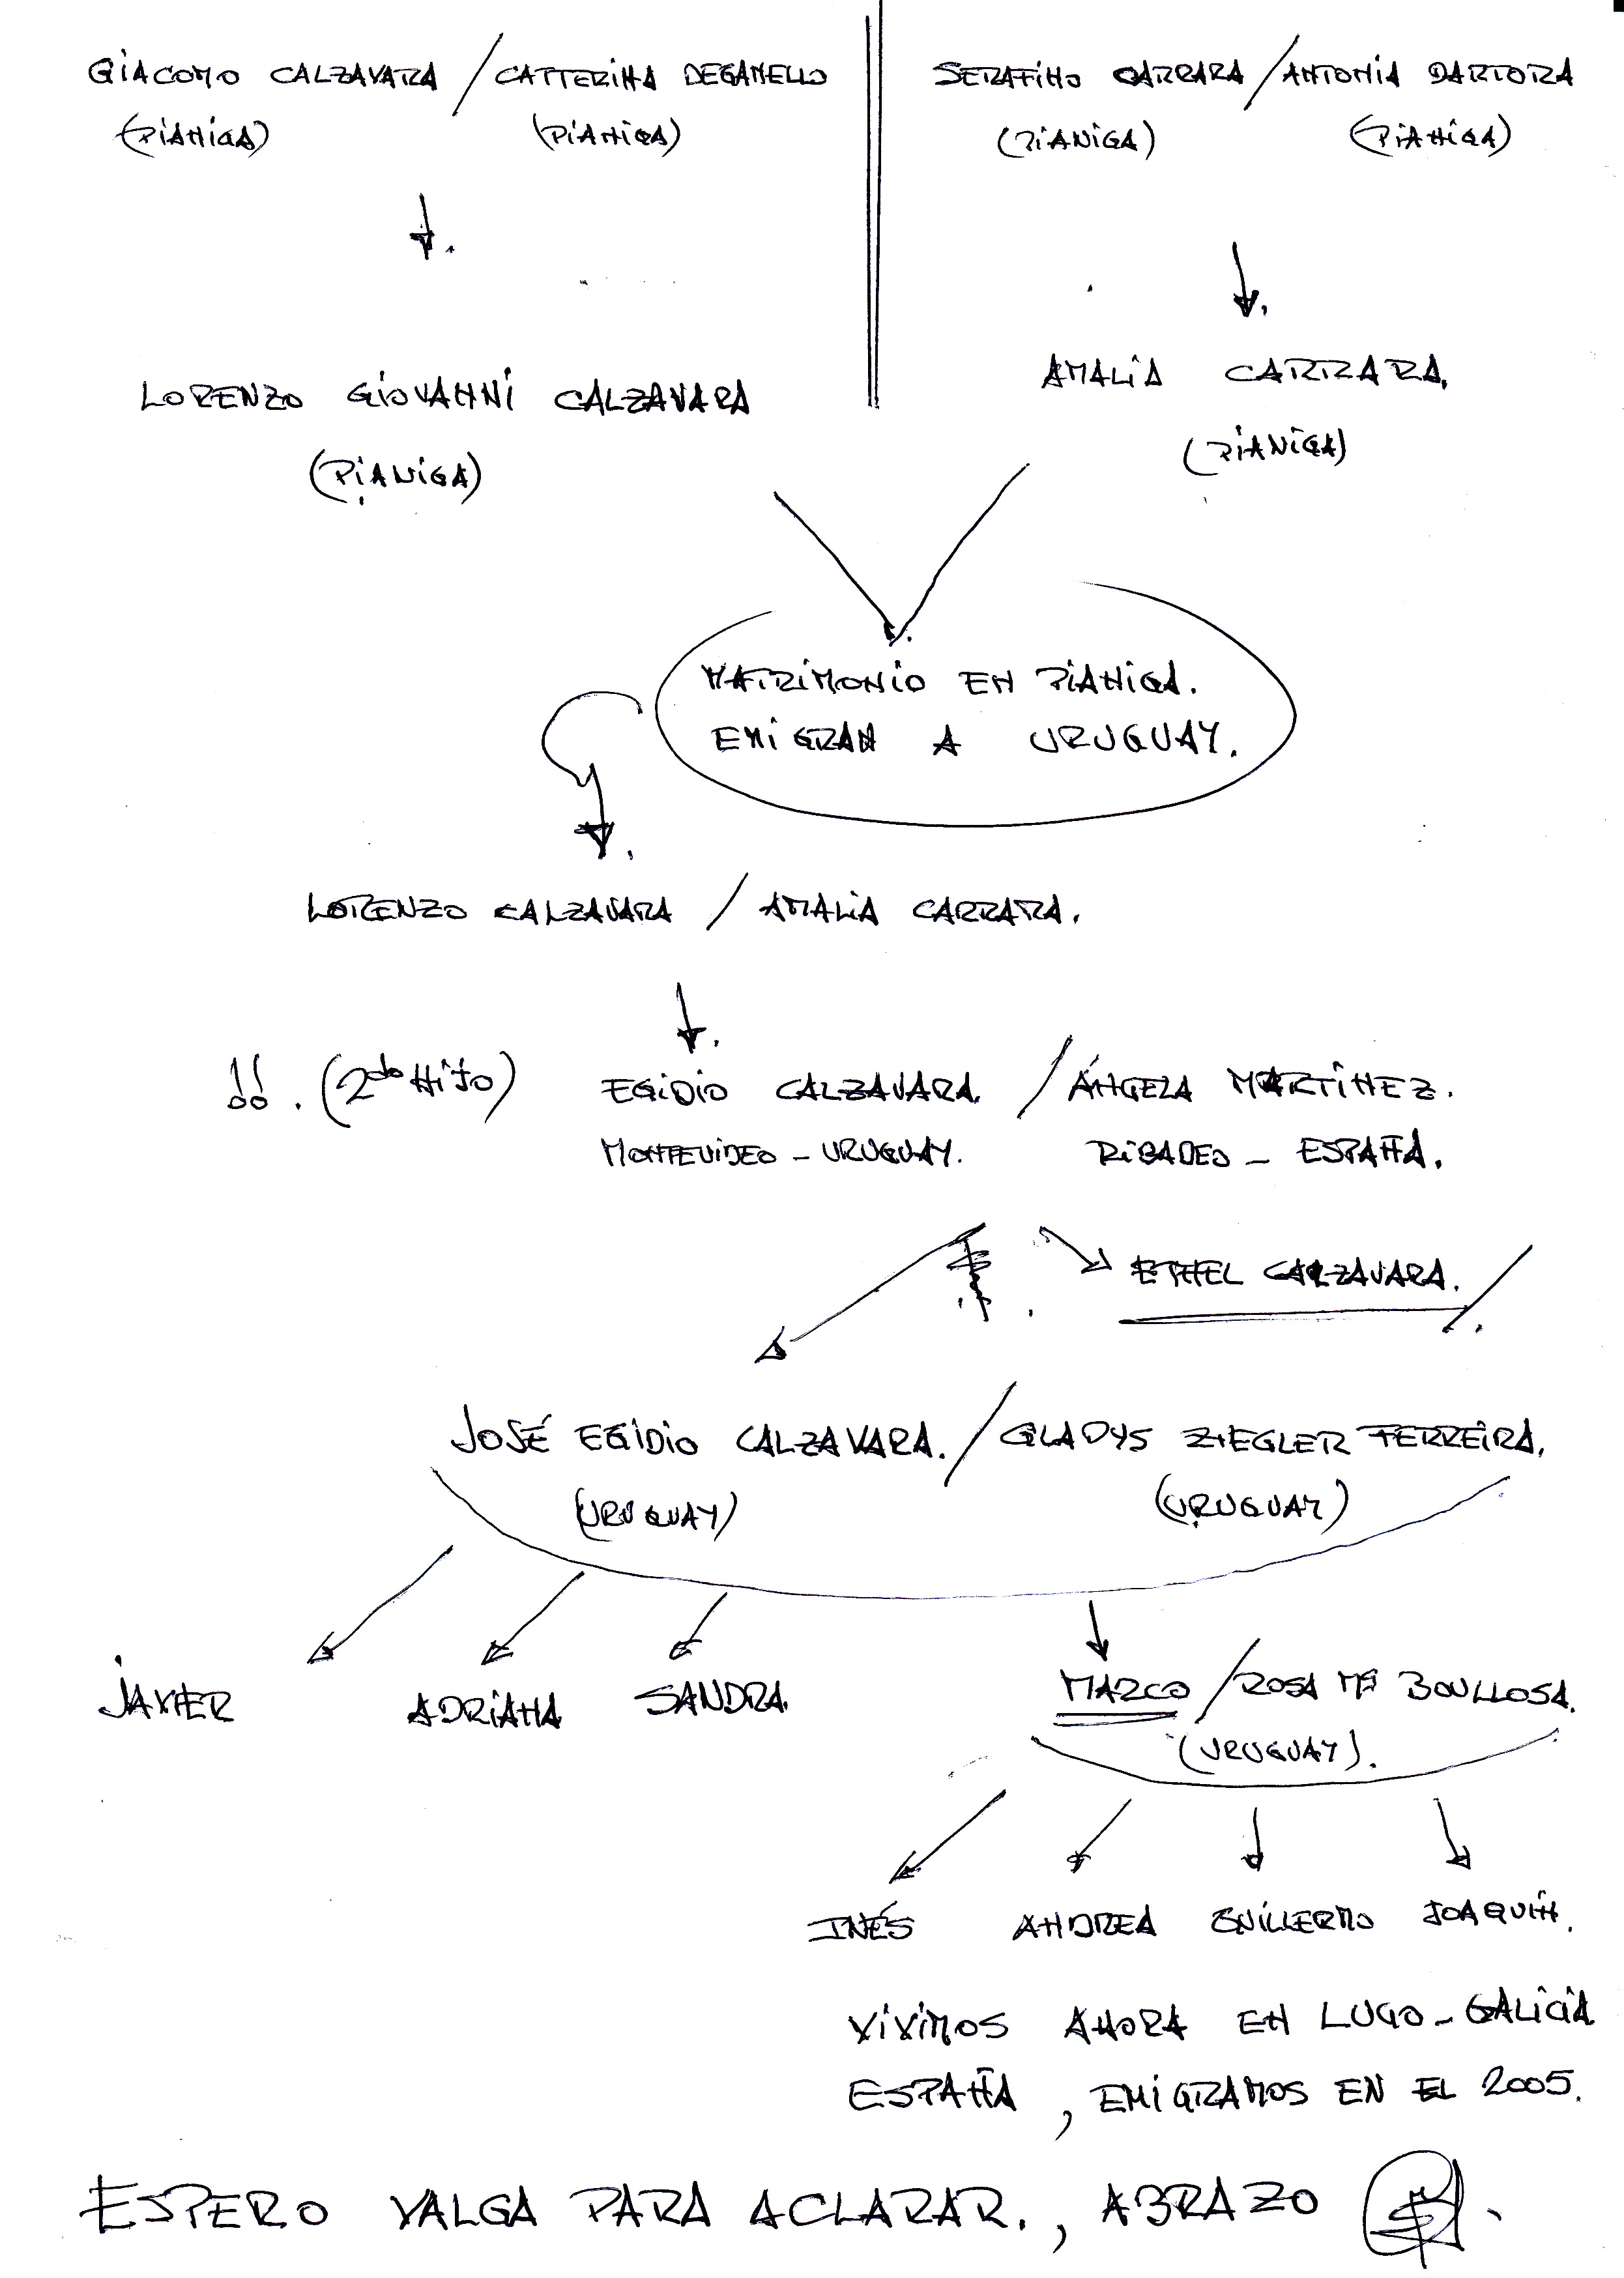 GIACOMO CALZAVARA / CATTERINA DEGANELLO
(PIANIGA) (PIANIGA)
SERAFINO CARRARA / ANTONIA DARTORA
(PIANIGA) (PIANIGA)
LORENZO GIOVANNI CALZAVARA
(PIANIGA)
AMALIA CARRARA.
(PIANIGA)
MATRIMONIO EN PIANIGA.
EMIGRAN A URUGUAY.
LORENZO CALZAVARA / AMALIA CARRARA.
!!. (2do HIJO) EGIDIO CALZAVARA. / ÁNGELA MARTINEZ.
MONTEVIDEO - URUGUAY. RIBADEO - ESPAÑA.
ETHEL CALZAVARA.
JOSÉ EGIDIO CALZAVARA. / GLADYS ZIEGLER FERREIRA.
(URUGUAY) (URUGUAY)
JAVIER ADRIANA SANDRA. MARCO / ROSA Mª BOULLOSA.
(URUGUAY).
INÉS ANDREA GUILLERMO JOAQUIN.
VIVIMOS AHORA EN LUGO - GALICIA
ESPAÑA, EMIGRAMOS EN EL 2005.
ESPERO VALGA PARA ACLARAR., ABRAZO